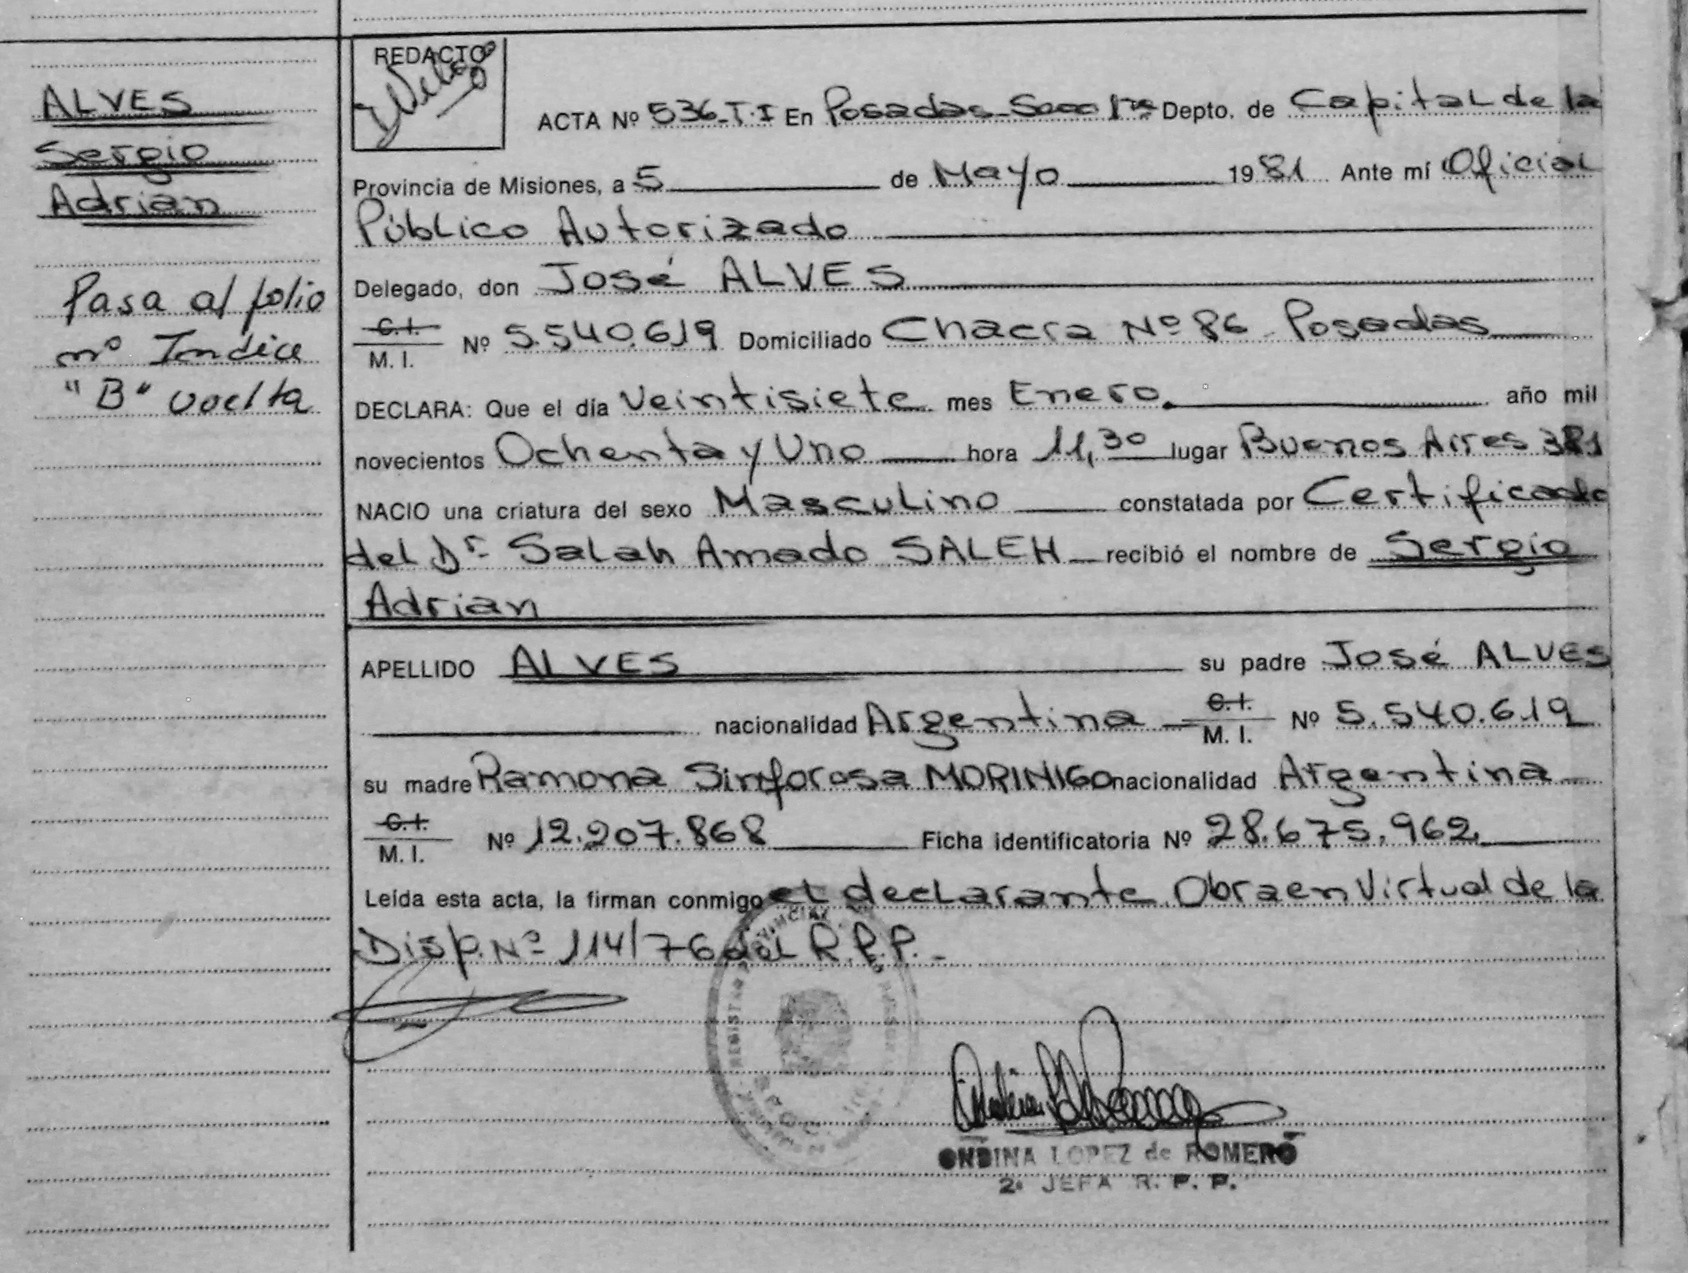 ALVES
Sergio
Adrian
Pasa al folio
nº Indice
"B" vuelta
REDACTO
ACTA Nº 536-T-I En Posadas-Secc 1ra Depto. de Capital de la
Provincia de Misiones, a 5 de Mayo 1981 Ante mí Oficial
Público Autorizado
Delegado, don José ALVES
C.I.
M. I. Nº 5.540.619 Domiciliado Chacra Nº 86 Posadas
DECLARA: Que el día Veintisiete mes Enero. año mil
novecientos Ochenta y Uno hora 11,30 lugar Buenos Aires 381
NACIO una criatura del sexo Masculino constatada por Certificado
del Dr. Salah Amado SALEH recibió el nombre de Sergio
Adrian
APELLIDO ALVES su padre José ALVES
nacionalidad Argentina C.I.
M. I. Nº 5.540.619
su madre Ramona Sinforosa MORINIGO nacionalidad Argentina
C.I.
M. I. Nº 12.207.868 Ficha identificatoria Nº 28.675.962
Leída esta acta, la firman conmigo el declarante Obra en Virtud de la
Disp. Nº 114/76 del R.P.P.-
ONDINA LOPEZ de ROMERO
2ª JEFA R. P. P.